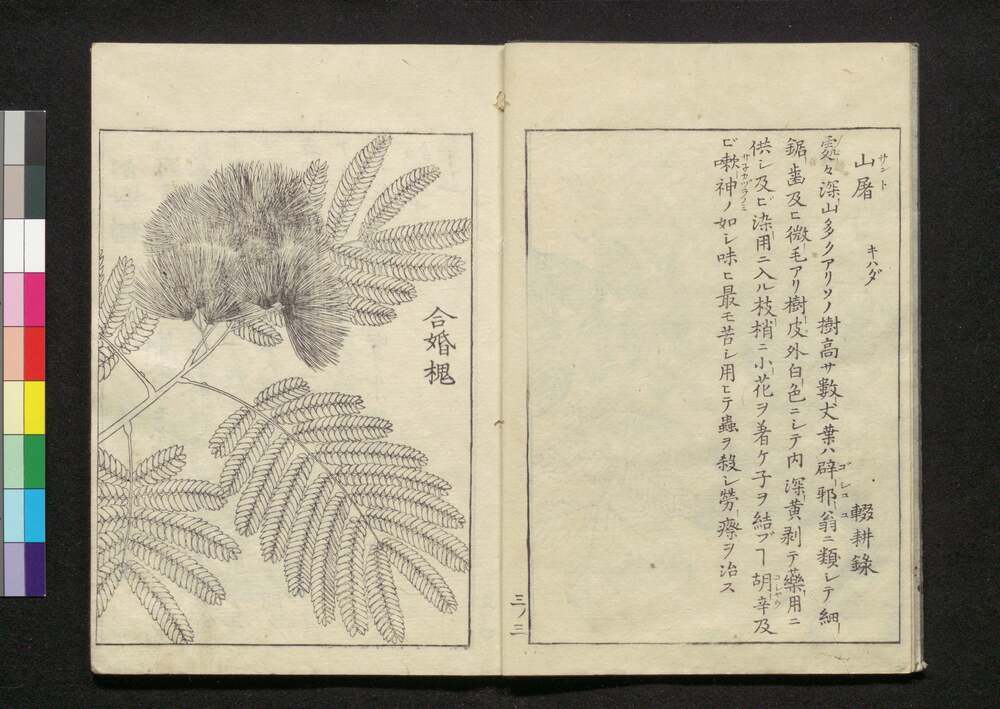 山屠 サント キハダ 輟耕錄
処々深山多クアリソノ樹高サ數丈葉ハ辟邪翁ニ類シテ細 ゴシユユ
鋸歯及ヒ微毛アリ樹皮外白色ニシテ内深黄剥テ藥用ニ
供シ及ビ染用ニ入ル枝梢ニ小花ヲ着ケ子ヲ結ブヿ胡辛及 コセヤウ
ビ嗽神ノ如シ味ヒ最モ苦シ用ヒテ蟲ヲ殺シ勞瘵ヲ治ス
三ノ三
合婚槐